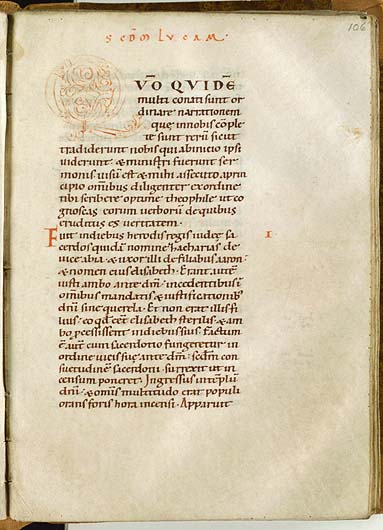 106
S CDM LVCAM
QVO QVIDE
multi conati sunt or
dinare narrationem
que in nobis cople
te sunt reru sicut
tradiderunt nobis qui ab inicio ipsi
viderunt & ministri fuerunt ser
monis visu est & mihi assecuto aprin
cipio omnibus diligenter ex ordine
tibi scribere optime theophile ut co
gnoscas eorum verboru de quibus
eruditus es veritatem.
Fuit in diebus herodis regis iudeę sa
cerdos quida nomine zacharias de
vice abia & uxor illi de filiabus aaron
& nomen eius elisabeth. Erant aute
iusti ambo ante dm. incedentes in
omnibus mandatis & iustificationib
dni sine querela. Et non erat illis fi
lius. eo qd eet elisabeth sterilis & am
bo pcessissent in diebus suis. Factum
e aut cum sacerdotio fungeretur in
ordine vicis suę ante dm. scdm con
suetudine sacerdotii. sorte exiit ut in
censum poneret. Ingressus in teplu
dni. & omnis multitudo erat populi
orans foris hora incensi. Apparuit
I